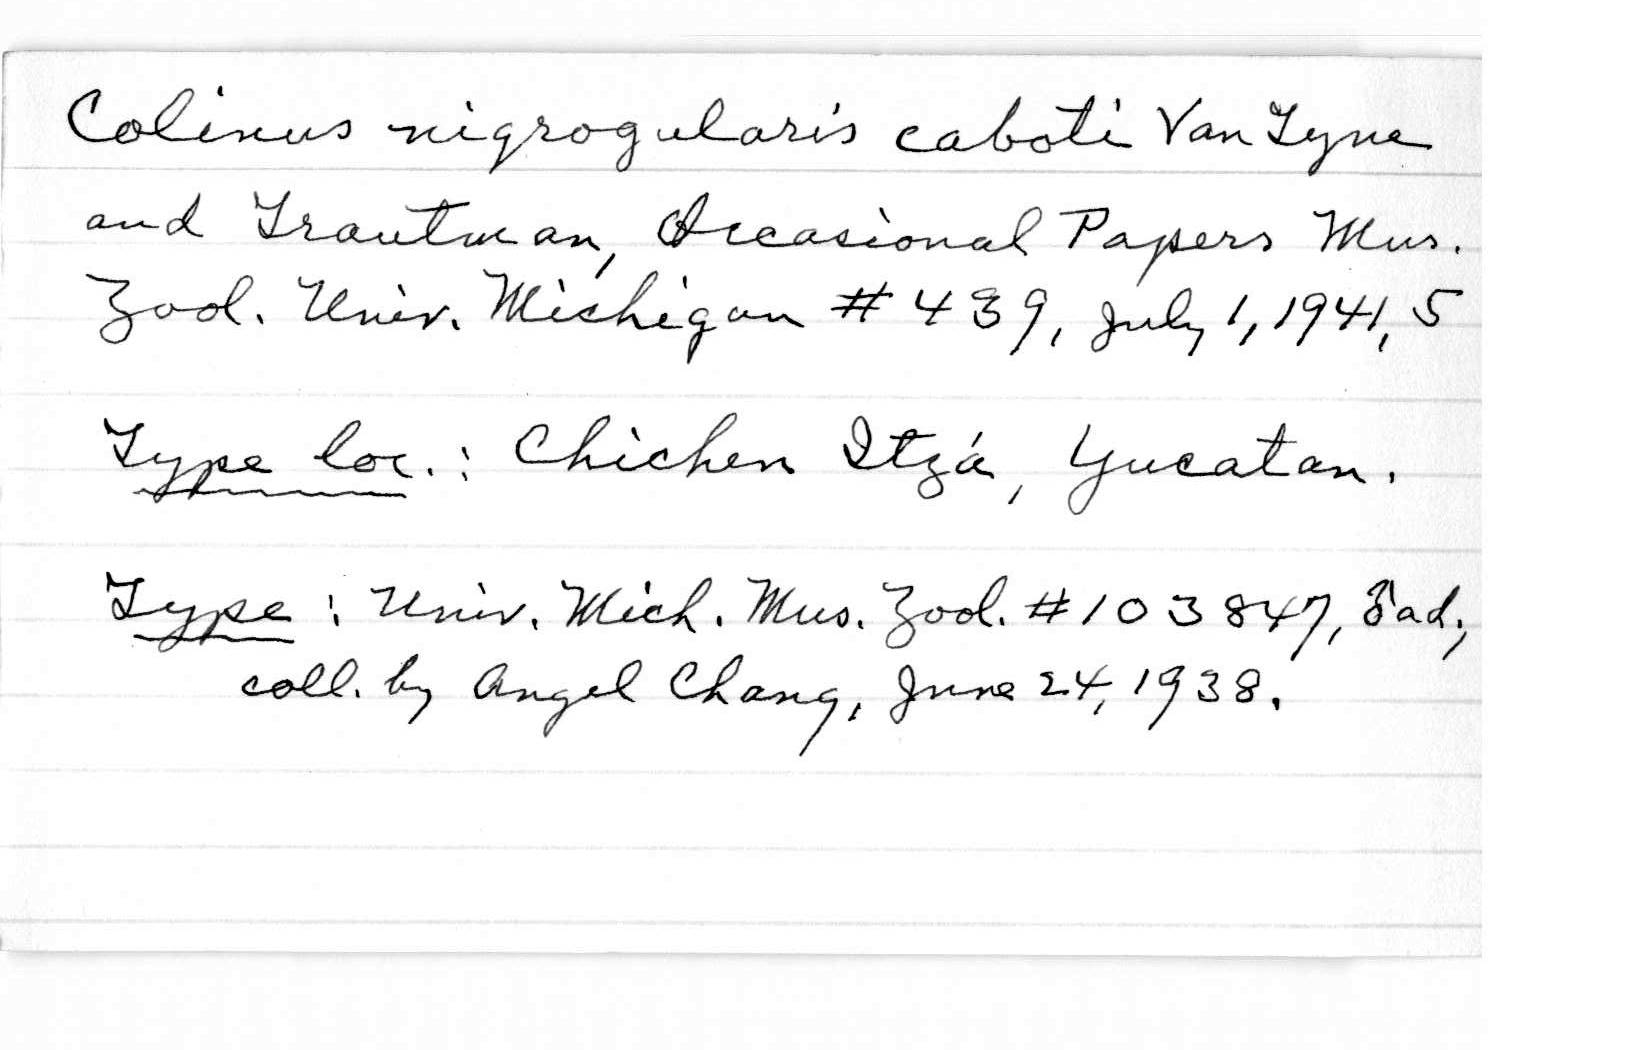 Colinus nigrogularis caboti Van Tyne
and Trautman, Occasional Papers Mus.
Zool. Univ. Michigan # 439, July 1, 1941, 5
Type loc.: Chichen Itzá, Yucatan.
Type: Univ. Mich. Mus. Zool. #103847, ♂ ad.;
coll. by Angel Chang, June 24, 1938.